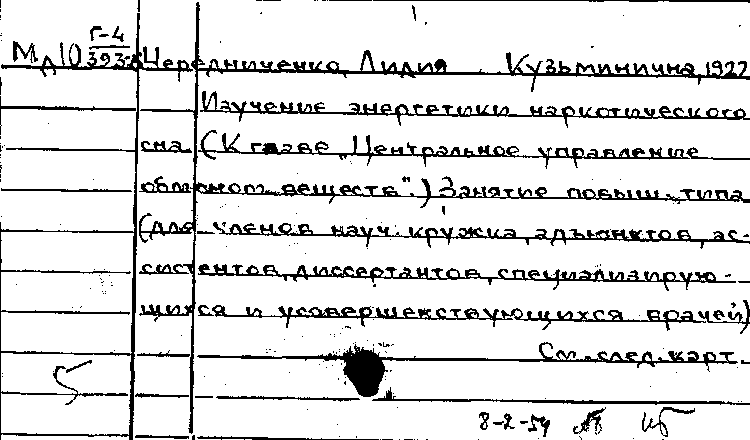 Г-4
МД10 393-5 Чередниченко, Лидия Кузьминична, 1922
Изучение энергетики наркотического
сна. (К главе "Центральное управление
обменом веществ".) Занятие повыш. типа
(для членов науч. кружка, адъюнктов, ас-
систентов, диссертантов, специализирую-
щихся и усовершенствующихся врачей)
См. след. карт.
5
8-2-54